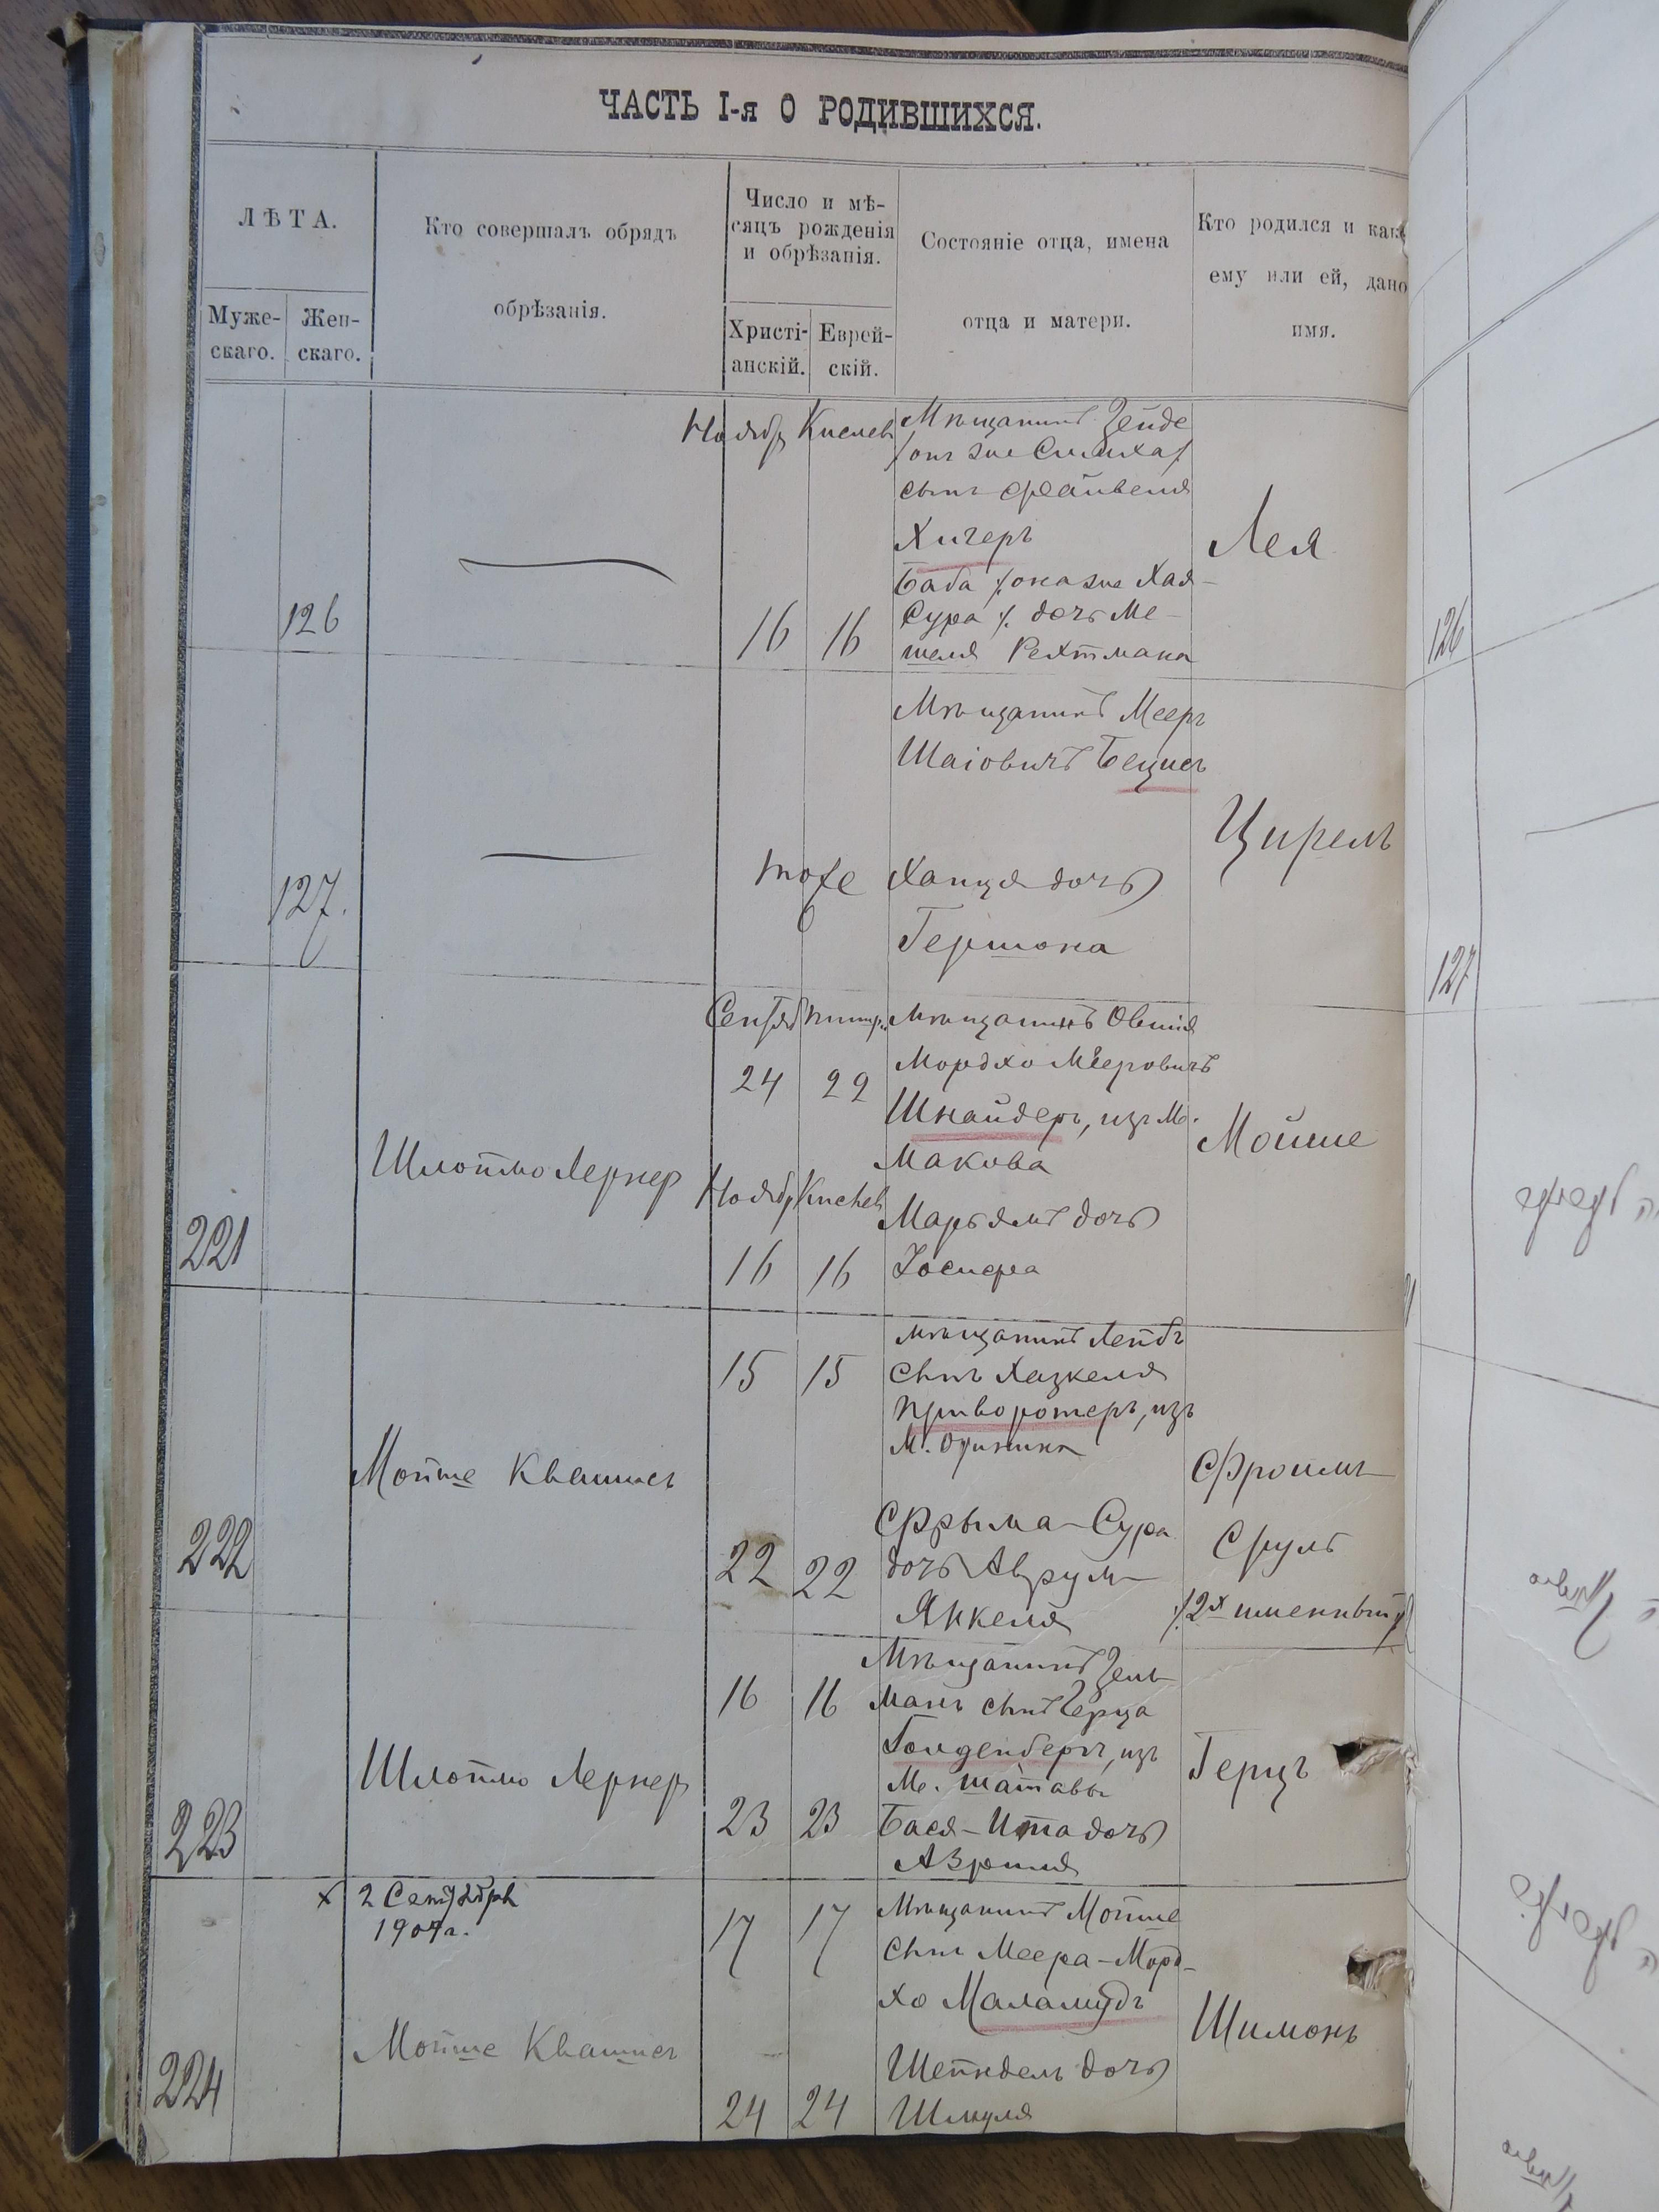 ЧАСТЬ I-я О РОДИВШИХСЯ.
ЛѢТА.
Муже-
скаго.
Жен-
скаго.
Кто совершалъ обрядъ
обрѣзанія.
Число и мѣ-
сяцъ рожденія
и обрѣзанія.
Христі-
анскій.
Еврей-
скій.
Состояніе отца, имена
отца и матери.
Кто родился и како
ему или ей, дано
имя.
126
Ноябр Кислев
16 16
Мѣщанинъ Зейде
/онъ же Симха/
сынъ Файвеля
Хигеръ
Баба /:она же Хая-
Сура /: дочь Ме-
шеля Рехтмана
Лея
126
127.
тоже
Мѣщанинъ Мееръ
Шаіовичъ
Ханця дочь
Гершона
Цирель
127
221
Шлоймо Лернер
Сентяб
24 22
Ноябр Кислев
16 16
Мѣщанинъ Овшія
Мордхо Мееровичъ
Шнайдеръ, изъ м.
Макова
Марьямъ дочь
Іосифа
Мойше
222
Мойше Квашнеъ
15 15
22 22
Мѣщанинъ Лейбъ
сынъ Хазкеля
Приворотеръ, изъ
м.
Фрыма-Сура
дочь Аврум-
Янкеля
Фроимъ
Сруль
/:2х именный/
223
Шлоймо Лернер
16 16
23 23
Мѣщанинъ Зель-
манъ сынъ Герца
Голденбергъ, изъ
м. Шатавы
Бася-Ита дочь
Азриля
Герцъ
224
x 2 Сентября
1909 г.
Мойше Квашнеъ
17 17
24 24
Мѣщанинъ Мойше
сынъ Меера-Морд-
хо Маламудъ
Шейндель дочь
Шмуля
Шимонъ